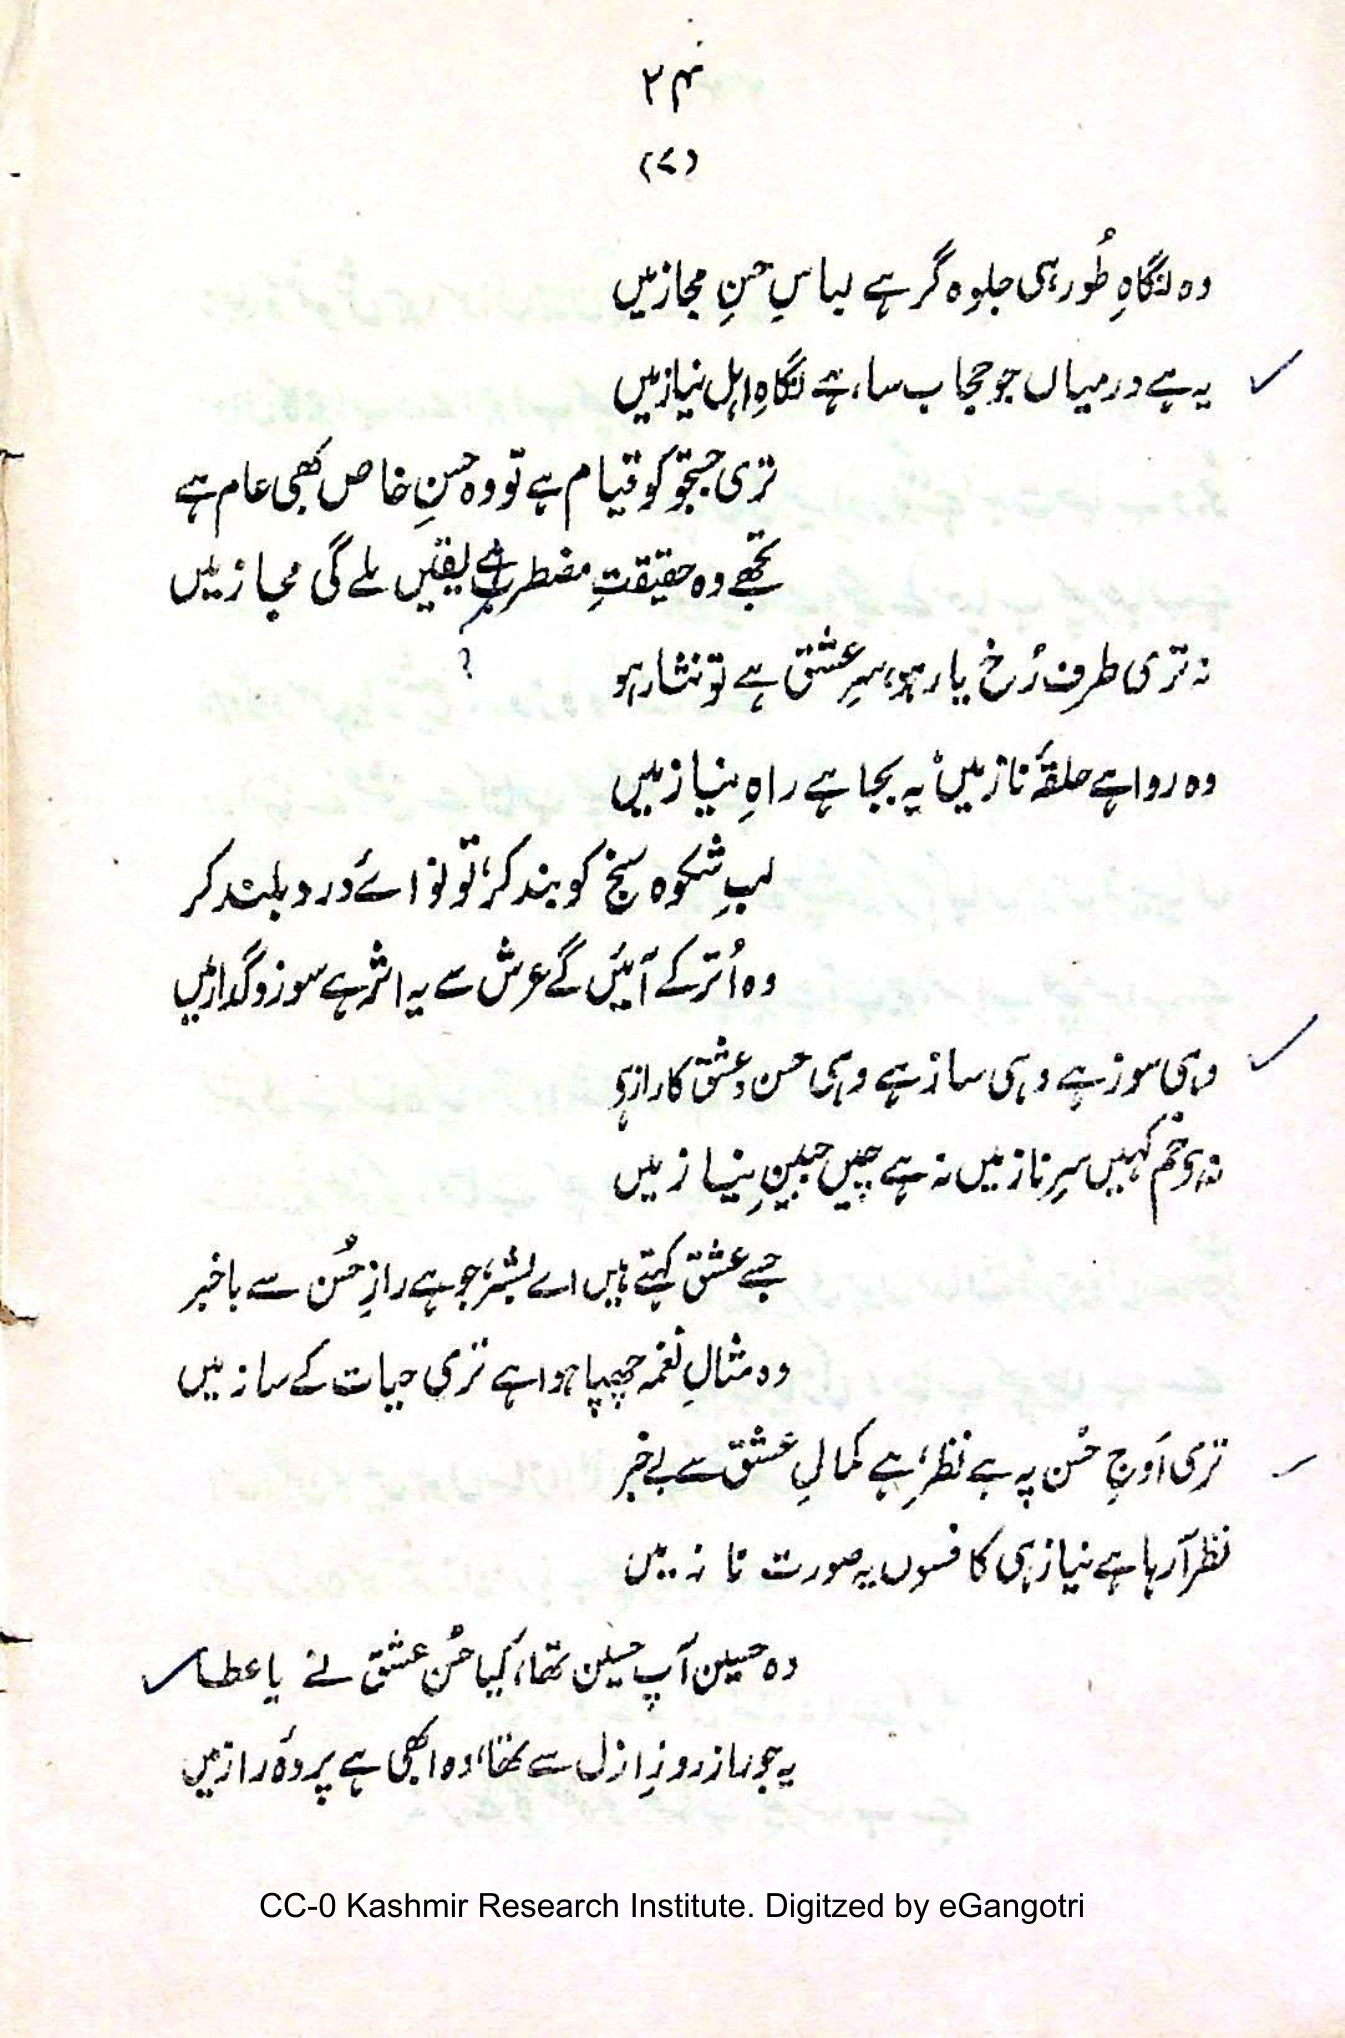 ۲۴
(۷)
وہ نگاہِ طُور ہی جلوہ گر ہے لباسِ حسنِ مجاز میں
یہ ہے درمیاں جو حجاب سا، ہے نگاہِ اہل نیاز میں
تری جستجو کو قیام ہے تو وہ حسنِ خاص کبھی عام ہے
تجھے وہ حقیقتِ مضطرب ہے یقیں ملے گی مجاز میں
؟
نہ تری طرف رُخ یار ہو، سرِ عشق ہے تو نثار ہو
وہ روا ہے حلقۂ ناز میں یہ بجا ہے راہِ نیاز میں
لبِ شکوہ سنج کو بند کر، تو نوائے درد بلند کر
وہ اُتر کے آئیں گے عرش سے یہ اثر ہے سوز و گداز میں
وہی سوز ہے وہی ساز ہے وہی حسن و عشق کا راز ہے
نہ ہو خم کہیں سرِ ناز میں نہ ہے چیں جبینِ نیاز میں
جسے عشق کہتے ہیں اے بشر، جو ہے رازِ حُسن سے باخبر
وہ مثالِ نغمہ چھپا ہوا ہے تری حیات کے ساز میں
تری اَوجِ حُسن پہ ہے نظر، ہے کمالِ عشق سے بے خبر
نظر آرہا ہے نیاز ہی کا فسوں یہ صورت ناز میں
وہ حسین آپ حسین تھا، کیا حُسن عشق نے یا عطا
یہ جو راز روزِ ازل سے تھا، وہ ابھی ہے پردۂ راز میں
CC-0 Kashmir Research Institute. Digitzed by eGangotri